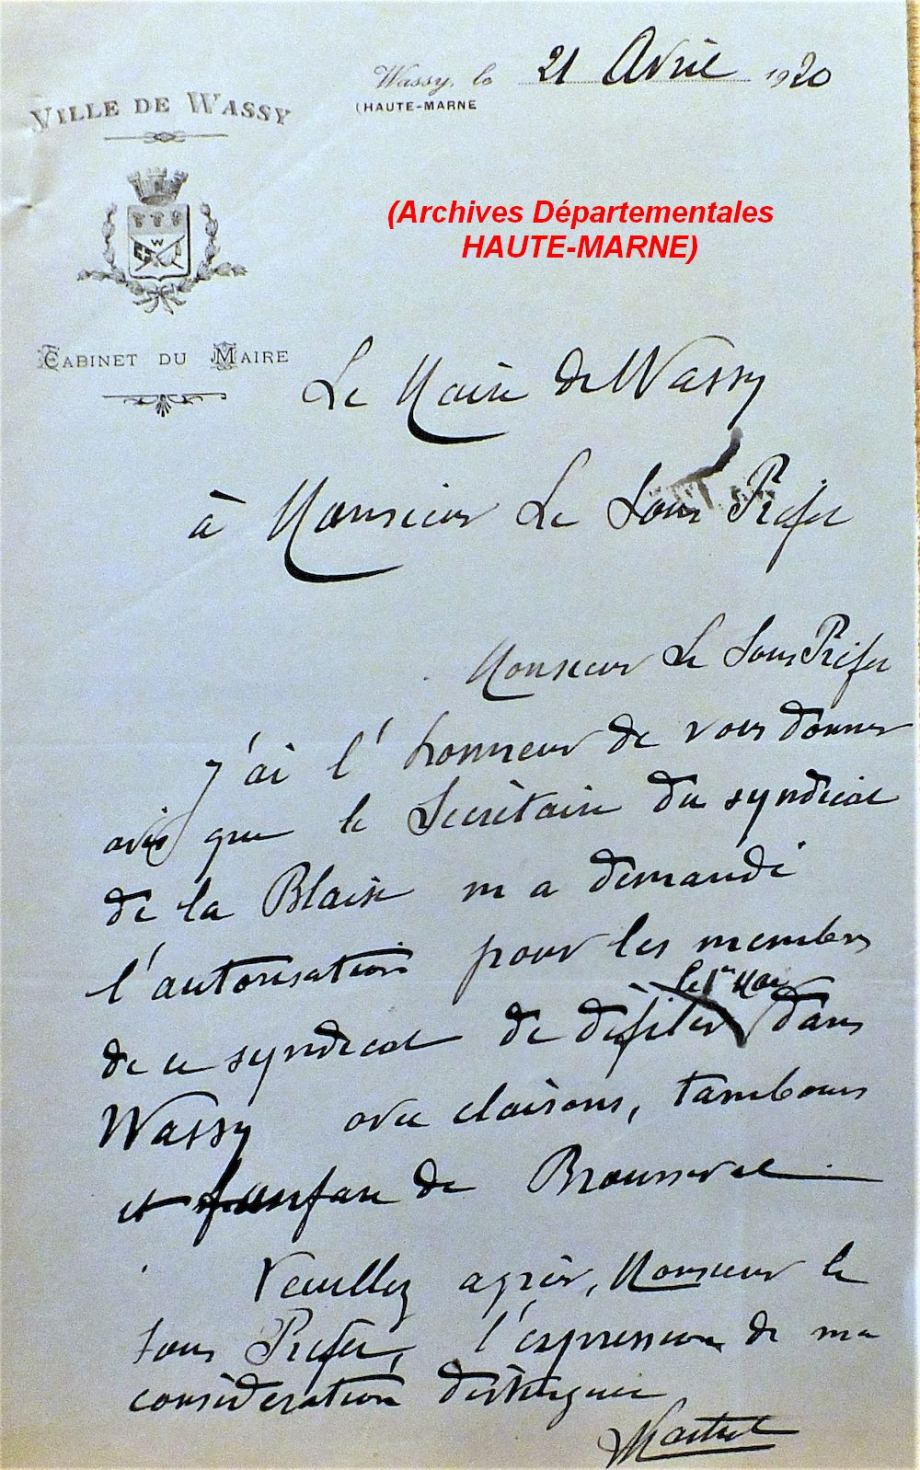 VILLE DE WASSY
Wassy, le 21 Avril 1920
(HAUTE-MARNE
(Archives Départementales
HAUTE-MARNE)
W
CABINET DU MAIRE
Le Maire de Wassy
à Monsieur Le Sous Préfet
Monsieur Le Sous Préfet
J'ai l'honneur de vous donner
avis que le Secrétaire du syndicat
de la Blaise m a demandé
l'autorisation pour les membres
le 1er Mai
de ce syndicat de défiler dans
Wassy avec clairons, tambours
et fanfare de Brousseval
Veuillez agréer, Monsieur le
Sous Préfet, l'expression de ma
considération distinguée